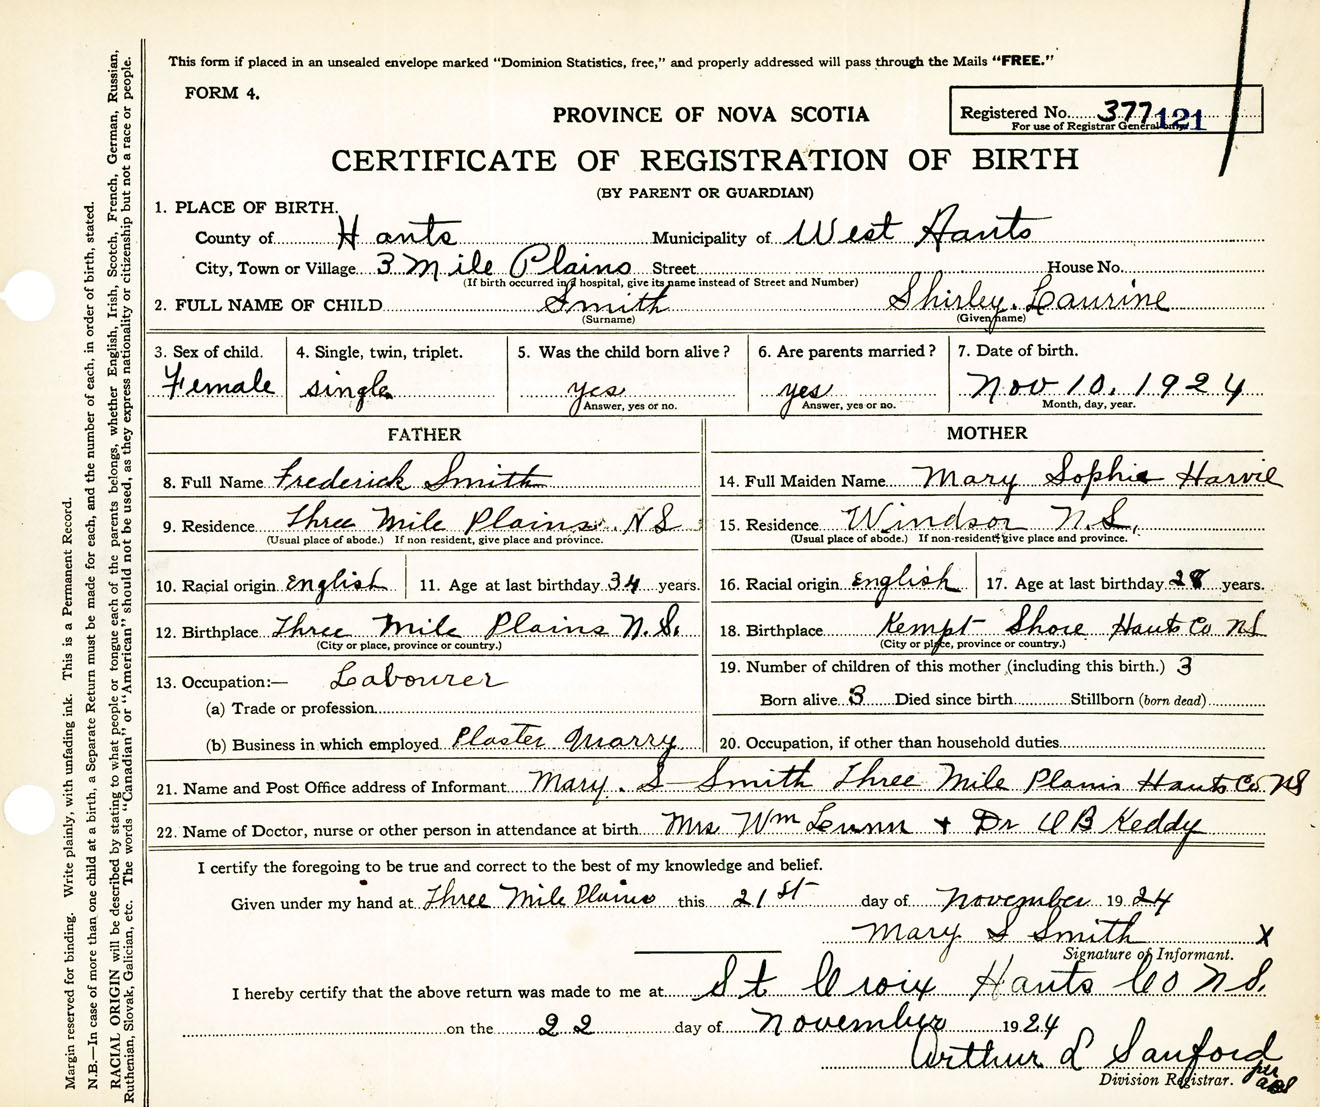 This form if placed in an unsealed envelope marked "Dominion Statistics, free," and properly addressed will pass through the Mails "FREE."
FORM 4.
PROVINCE OF NOVA SCOTIA
Registered No. 377 121
For use of Registrar General only.
CERTIFICATE OF REGISTRATION OF BIRTH
(BY PARENT OR GUARDIAN)
1. PLACE OF BIRTH.
County of Hants Municipality of West Hants
City, Town or Village 3 Mile Plains Street House No.
(If birth occurred in a hospital, give its name instead of Street and Number)
2. FULL NAME OF CHILD Smith Shirley Laurine
(Surname) (Given name)
3. Sex of child. 4. Single, twin, triplet. 5. Was the child born alive? 6. Are parents married? 7. Date of birth.
Female single yes yes Nov 10, 1924
Answer, yes or no. Answer, yes or no. Month, day, year.
FATHER MOTHER
8. Full Name Frederick Smith 14. Full Maiden Name Mary Sophie Harvie
9. Residence Three Mile Plains N S 15. Residence Windsor N.S.
(Usual place of abode.) If non resident, give place and province. (Usual place of abode.) If non-resident give place and province.
10. Racial origin English 11. Age at last birthday 34 years. 16. Racial origin English 17. Age at last birthday 28 years.
12. Birthplace Three Mile Plains N.S. 18. Birthplace Kempt Shore Hants Co NS
(City or place, province or country.) (City or place, province or country.)
13. Occupation:— Labourer 19. Number of children of this mother (including this birth.) 3
(a) Trade or profession Born alive 3 Died since birth Stillborn (born dead)
(b) Business in which employed Plaster Quarry 20. Occupation, if other than household duties
21. Name and Post Office address of Informant Mary S Smith Three Mile Plains Hants Co NS
22. Name of Doctor, nurse or other person in attendance at birth Mrs Wm + Dr Keddy
I certify the foregoing to be true and correct to the best of my knowledge and belief.
Given under my hand at Three Mile Plains this 21st day of November 1924
Mary S Smith X
Signature of Informant.
I hereby certify that the above return was made to me at St Croix Hants Co N S.
on the 22 day of November 1924
Arthur L Sanford
Division Registrar. per
Margin reserved for binding. Write plainly, with unfading ink. This is a Permanent Record.
N.B.—In case of more than one child at a birth, a Separate Return must be made for each, and the number of each, in order of birth, stated.
RACIAL ORIGIN will be described by stating to what people or tongue each of the parents belongs, whether English, Irish, Scotch, French, German, Russian,
Ruthenian, Slovak, Galician, etc. The words "Canadian" or "American" should not be used, as they express nationality or citizenship but not a race or people.